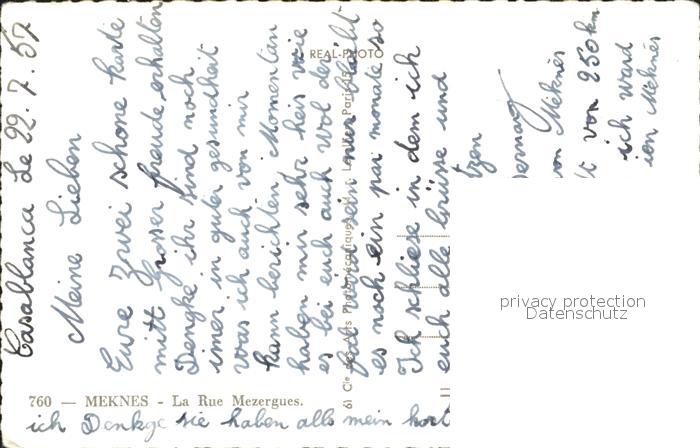 Casablanca Le 22.7.57
Meine Lieben
Eure zwei schone karte
mitt grosser freude erhalten
Dengke ihr sind noch
imer in guter gesundheit
was ich auch von mir
kann berichten. Momentan
haben mir sehr heis wie
es bei euch auch wol der
fal wird sein nur bleibt
es noch ein par monate so
Ich schliese in dem ich
euch alle Grüsse und
tzen
von Meknès
t von 250 km.
ich ward
ien Meknès
REAL-PHOTO
Cie des Arts Photomécaniques
760 — MEKNES - La Rue Mezergues.
ich Denkge sie haben alls mein kort
privacy protection
Datenschutz